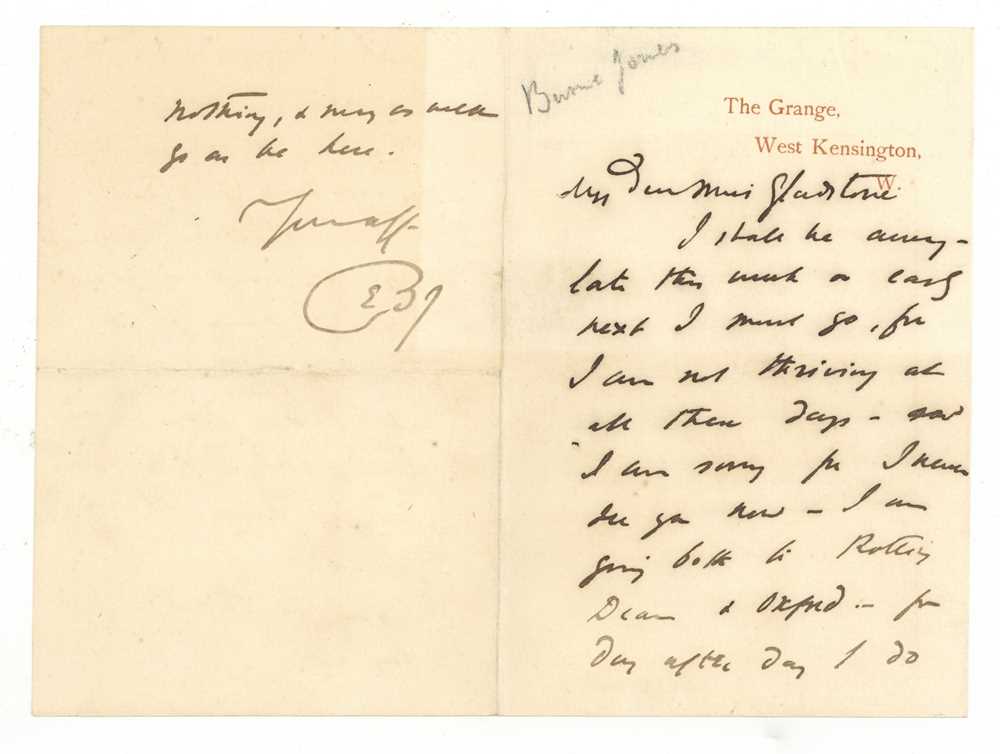 Burne Jones
The Grange,
West Kensington,
W.
My dear Miss Gladstone
I shall be away -
late this week or early
next I must go, for
I am not thriving at
all these days - and
I am sorry for I never
see you now - I am
going both to Rotting
Dean & Oxford - for
day after day I do
nothing, & may as well
go as be here.
Your aff
EBJ